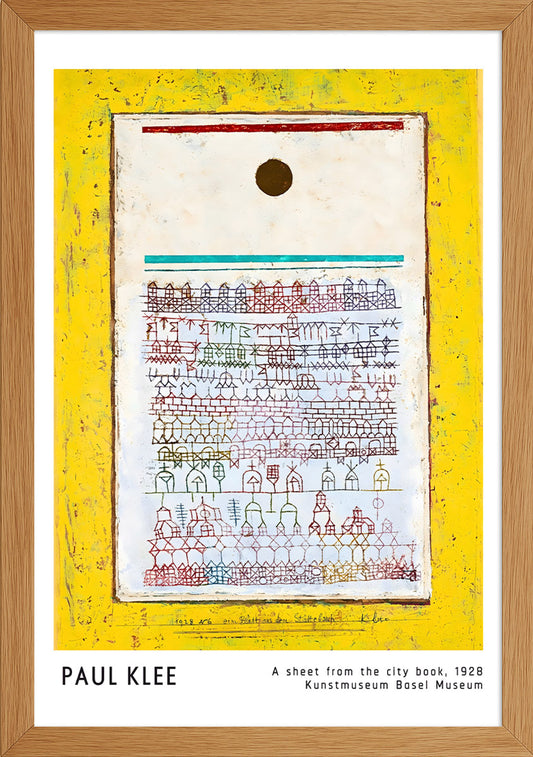 1928 N 6 ein Blatt aus dem Städtebuch Klee
PAUL KLEE
A sheet from the city book, 1928
Kunstmuseum Basel Museum